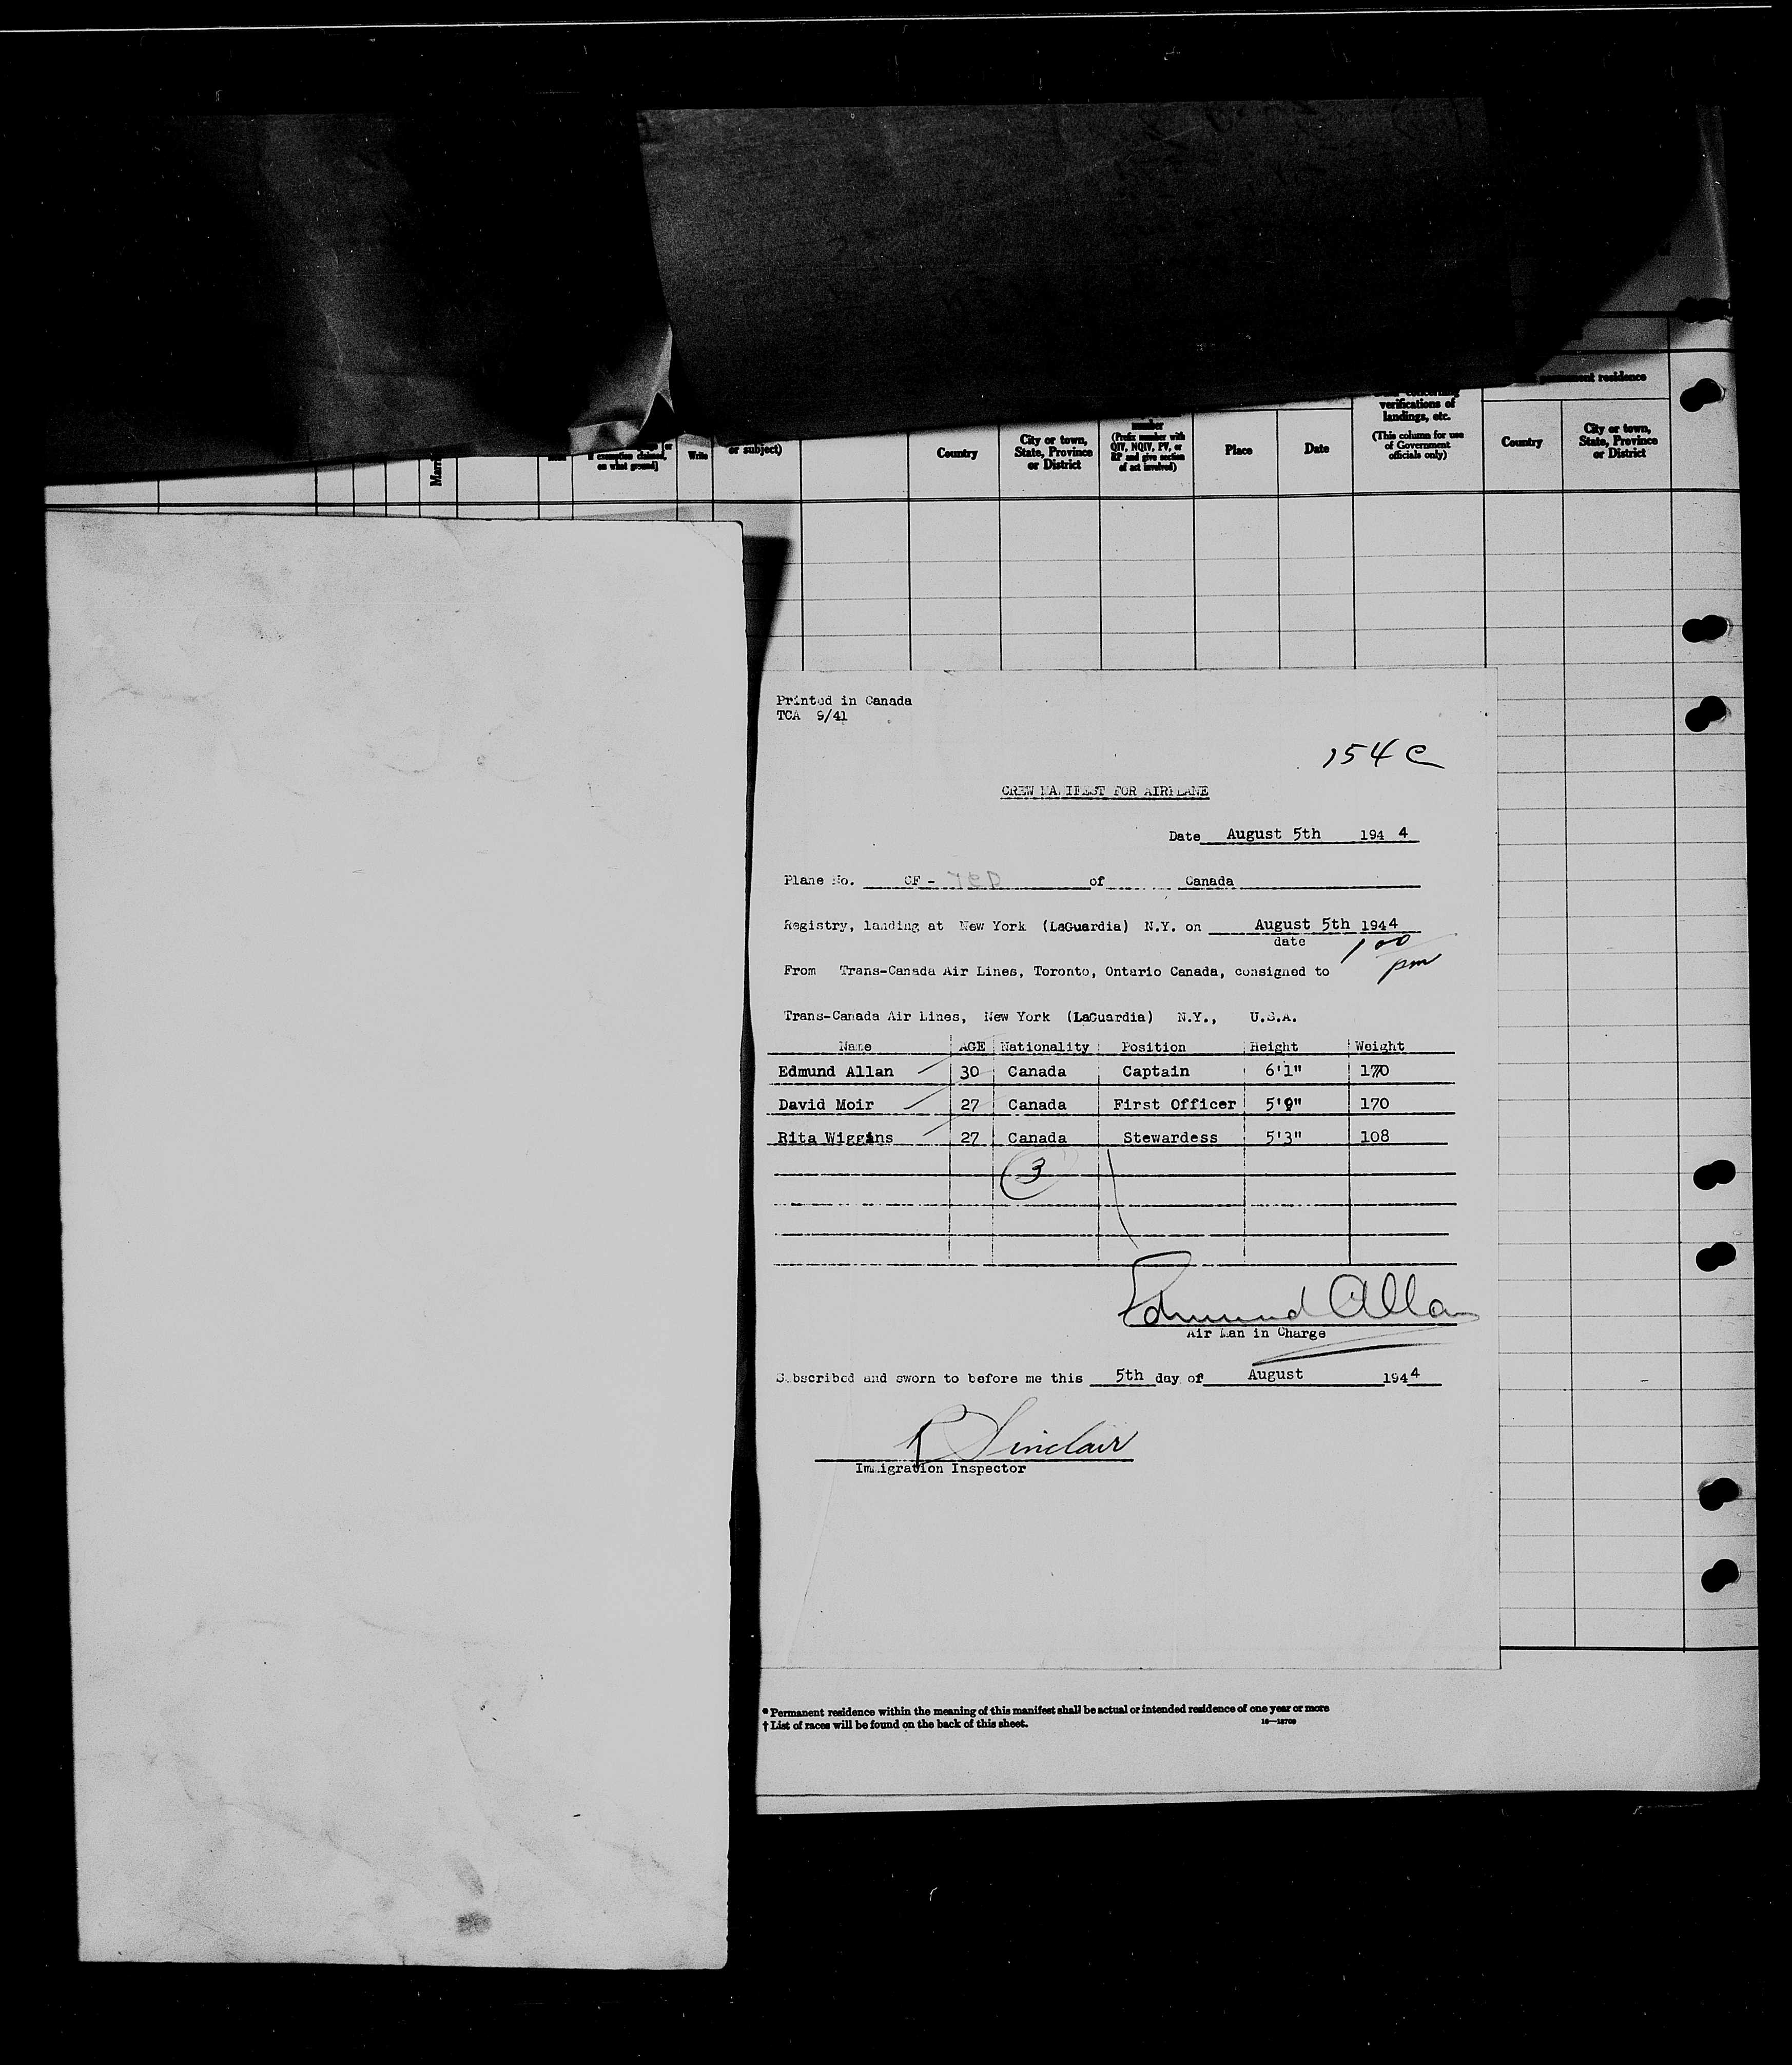 permanent residence
verifications of
landings, etc.
(This column for use
of Government
officials only)
number
(Prefix number with
QIV, NQIV, PV, or
RP and give section
of act involved)
City or town,
State, Province
or District
Country
Place
Date
Country
City or town,
State, Province
or District
or subject)
Write
if exemption claimed,
on what ground)
Printed in Canada
TCA 9/41
154 C
CREW MANIFEST FOR AIRPLANE
Date August 5th 194 4
Plane No. CF - of Canada
Registry, landing at New York (LaGuardia) N.Y. on August 5th 1944
date
1 00 pm
From Trans-Canada Air Lines, Toronto, Ontario Canada, consigned to
Trans-Canada Air Lines, New York (LaGuardia) N.Y., U.S.A.
Name AGE Nationality Position Height Weight
Edmund Allan 30 Canada Captain 6'1" 170
David Moir 27 Canada First Officer 5'9" 170
Rita Wiggins 27 Canada Stewardess 5'3" 108
3
Edmund Allan
Air Man in Charge
Subscribed and sworn to before me this 5th day of August 1944
R Sinclair
Immigration Inspector
* Permanent residence within the meaning of this manifest shall be actual or intended residence of one year or more
† List of races will be found on the back of this sheet.